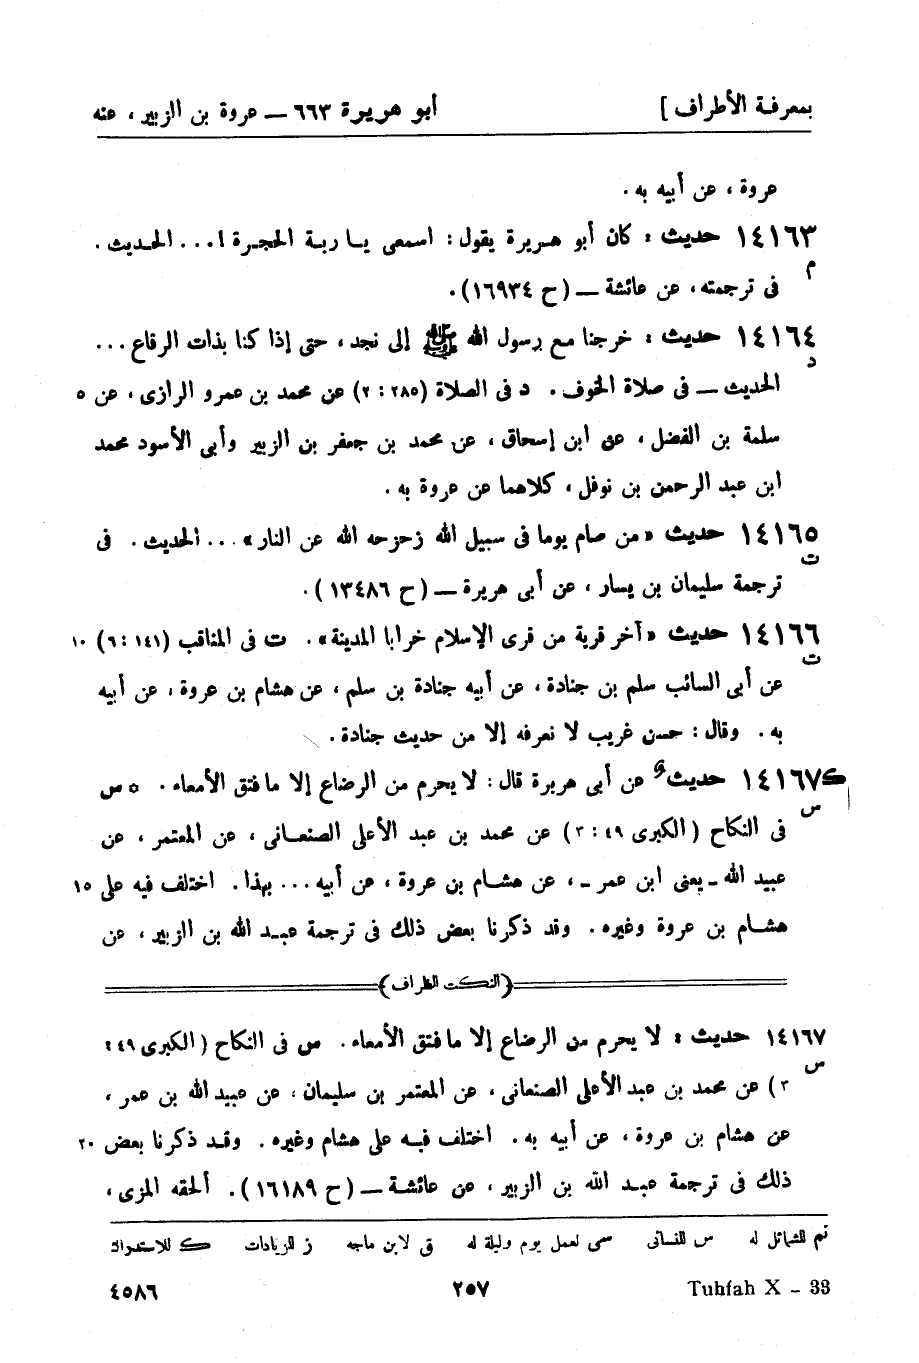 بمعرفة الأطراف ] أبو هريرة ٦٦٣ — عروة بن الزبير ، عنه
عروة ، عن أبيه به .
١٤١٦٣ حديث : كان أبو هريرة يقول : اسمعى يا ربة الحجرة ! ... الحديث .
م
فى ترجمته ، عن عائشة — (ح ١٦٩٣٤) .
١٤١٦٤ حديث : خرجنا مع رسول الله ﷺ إلى نجد ، حتى إذا كنا بذات الرقاع ...
د
الحديث — فى صلاة الخوف . د فى الصلاة (٢٨٥ : ٢) عن محمد بن عمرو الرازى ، عن ٥
سلمة بن الفضل ، عن ابن إسحاق ، عن محمد بن جعفر بن الزبير وأبى الأسود محمد
ابن عبد الرحمن بن نوفل ، كلاهما عن عروة به .
١٤١٦٥ حديث «من صام يوما فى سبيل الله زحزحه الله عن النار» ... الحديث . فى
ت
ترجمة سليمان بن يسار ، عن أبى هريرة — (ح ١٣٤٨٦) .
١٤١٦٦ حديث «آخر قرية من قرى الإسلام خرابا المدينة» . ت فى المناقب (١٤١ : ٦) ١٠
ت
عن أبى السائب سلم بن جنادة ، عن أبيه جنادة بن سلم ، عن هشام بن عروة ، عن أبيه
به . وقال : حسن غريب لا نعرفه إلا من حديث جنادة .
ك١٤١٦٧ حديث عن أبى هريرة قال : لا يحرم من الرضاع إلا ما فتق الأمعاء . * س
س
فى النكاح ( الكبرى ٤٩ : ٣) عن محمد بن عبد الأعلى الصنعانى ، عن المعتمر ، عن
عبيد الله ـ يعنى ابن عمر ـ ، عن هشام بن عروة ، عن أبيه ... بهذا . اختلف فيه على ١٥
هشام بن عروة وغيره . وقد ذكرنا بعض ذلك فى ترجمة عبد الله بن الزبير ، عن
(النكت الظراف)
١٤١٦٧ حديث : لا يحرم من الرضاع إلا ما فتق الأمعاء . س فى النكاح ( الكبرى ٤٩ :
س
٣ ) عن محمد بن عبد الأعلى الصنعانى ، عن المعتمر بن سليمان ، عن عبيد الله بن عمر ،
عن هشام بن عروة ، عن أبيه به . اختلف فيه على هشام وغيره . وقد ذكرنا بعض ٢٠
ذلك فى ترجمة عبد الله بن الزبير ، عن عائشة — (ح ١٦١٨٩) . ألحقه المزى ،
تم للشمائل له س للنسائى سى لعمل يوم وليلة له ق لابن ماجه ز للزيادات ك للاستدراك
Tuhfah X - 33 ٢٥٧ ٤٥٨٦